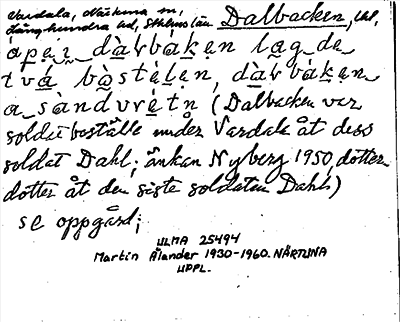 Vardala, Närtuna sn, Dalbacken, Upl,
Långhundra hd, Sthlms län
åpeṇ dàrbákẹn lạg de
två̱ bàstẹ́lẹn, dàrbákẹn
a sàndvrẹ́tn (Dalbacken var
soldatboställe under Vardala åt dess
soldat Dahl; änkan Nyberg 1950, dotter
dotter åt den siste soldaten Dahl)
se oppgård;
ULMA 25494
Martin Ålander 1930-1960. NÄRTUNA
UPPL.